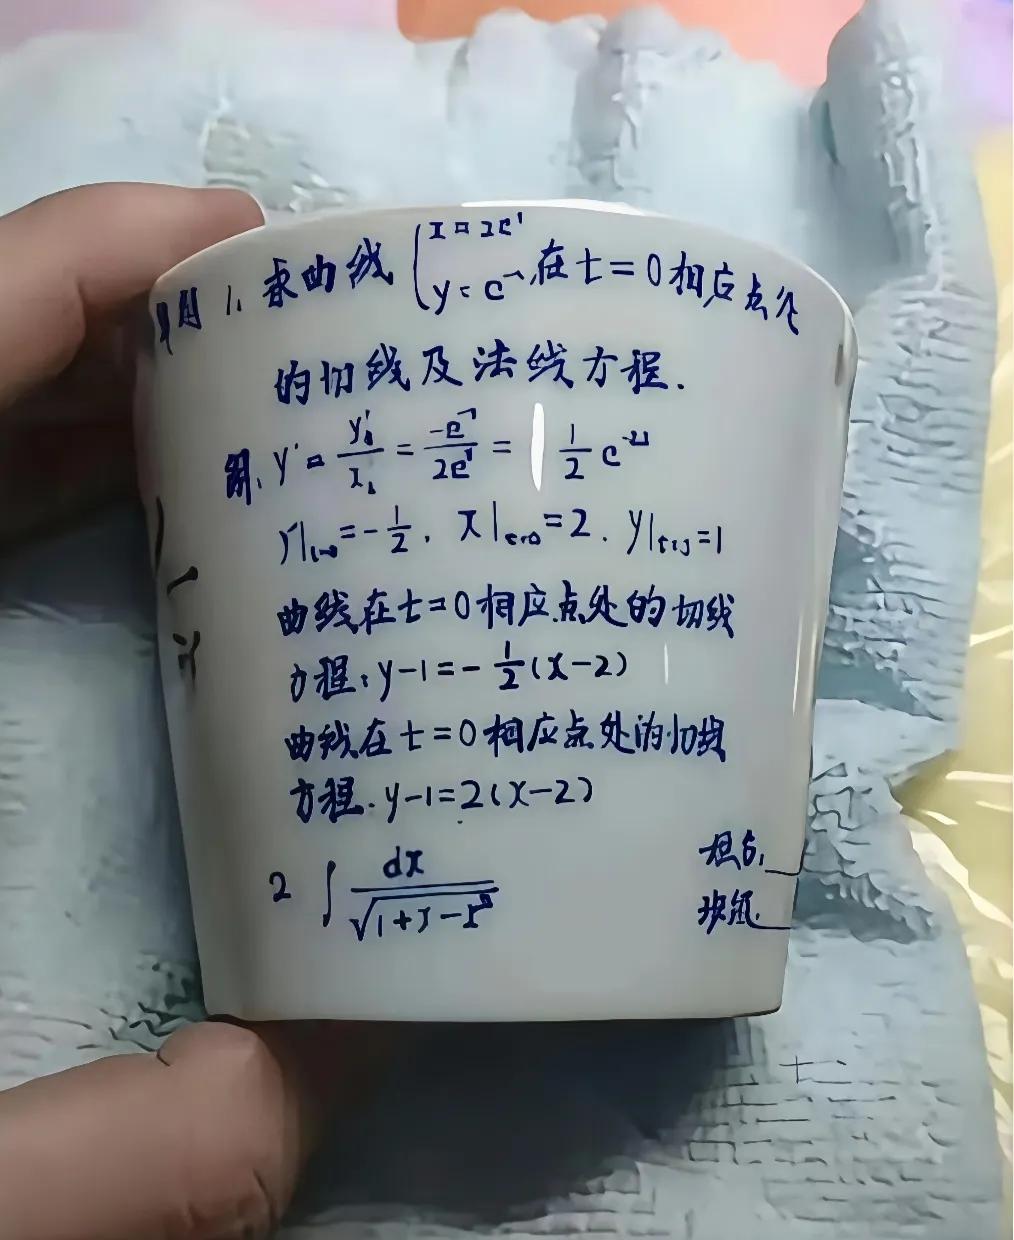 1. 求曲线 { x = 2e^t
y = e^-t 在t=0相应点处
的切线及法线方程.
解. y' = y't/xt = -e^-t/2e^t = 1/2 e^-2t
y'|t=0 = -1/2 . x|t=0 = 2 . y|t=0 = 1
曲线在t=0相应点处的切线
方程: y-1=-1/2(x-2)
曲线在t=0相应点处的切线
方程. y-1=2(x-2)
2 ∫ dx/√(1+x-x²)